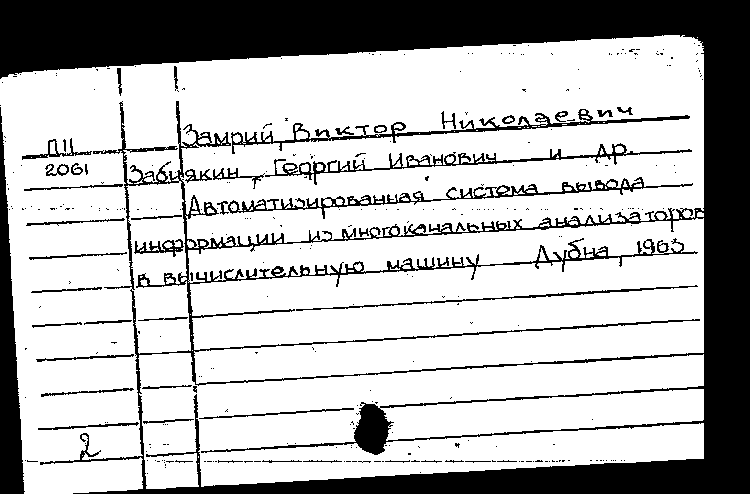 Замрий, Виктор Николаевич
П11
2061
Забиякин, Георгий Иванович и др.
Автоматизированная система вывода
информации из многоканальных анализаторов
в вычислительную машину Дубна, 1963
2